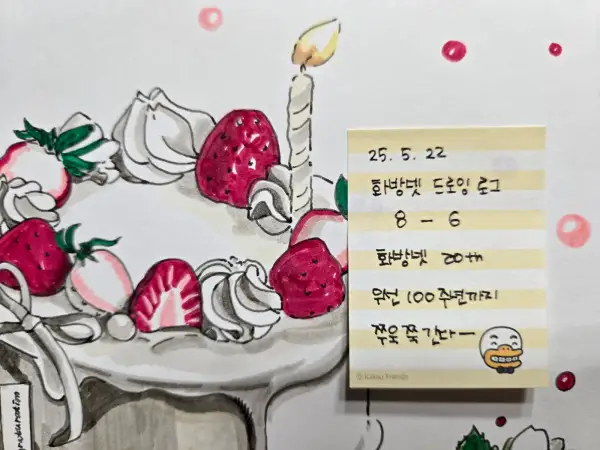 25. 5. 22
화방넷 드로잉 로그
8 - 6
화방넷 20th
우선 100주년까지
쭈욱 쭉 간다-
© Kakao Friends